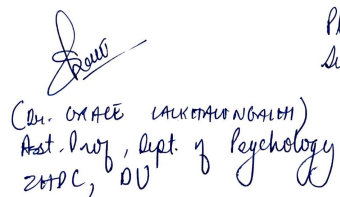 (Dr. GRACE LALKHAWNGAIHI)
Asst. Prof, Dept. of Psychology
ZHDC, DU